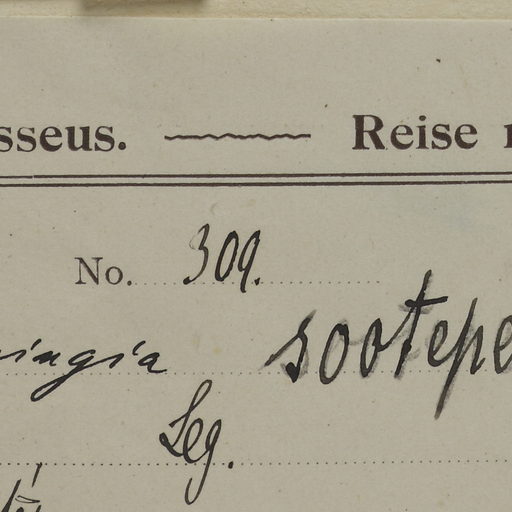 sseus. Reise
No. 309.
ingia sootepe
Leg.